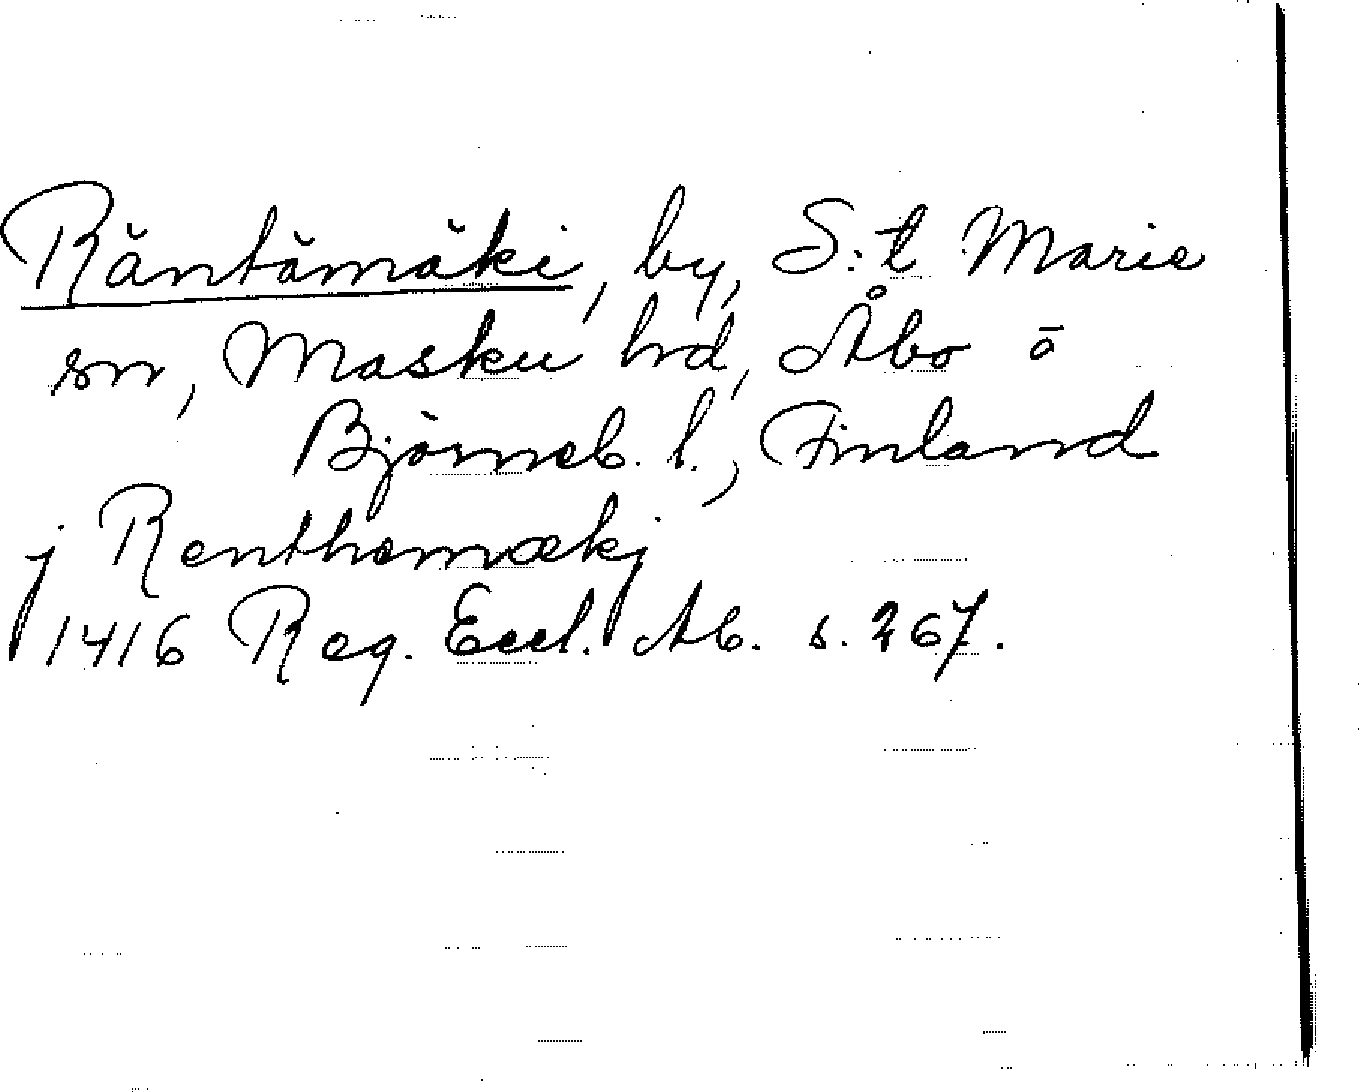 Räntämäki, by, S:t Marie
sn, Masku hd, Åbo o
Björneb. l., Finland
j Renthemækj
1416 Reg. Eccl. Ab. s. 267.